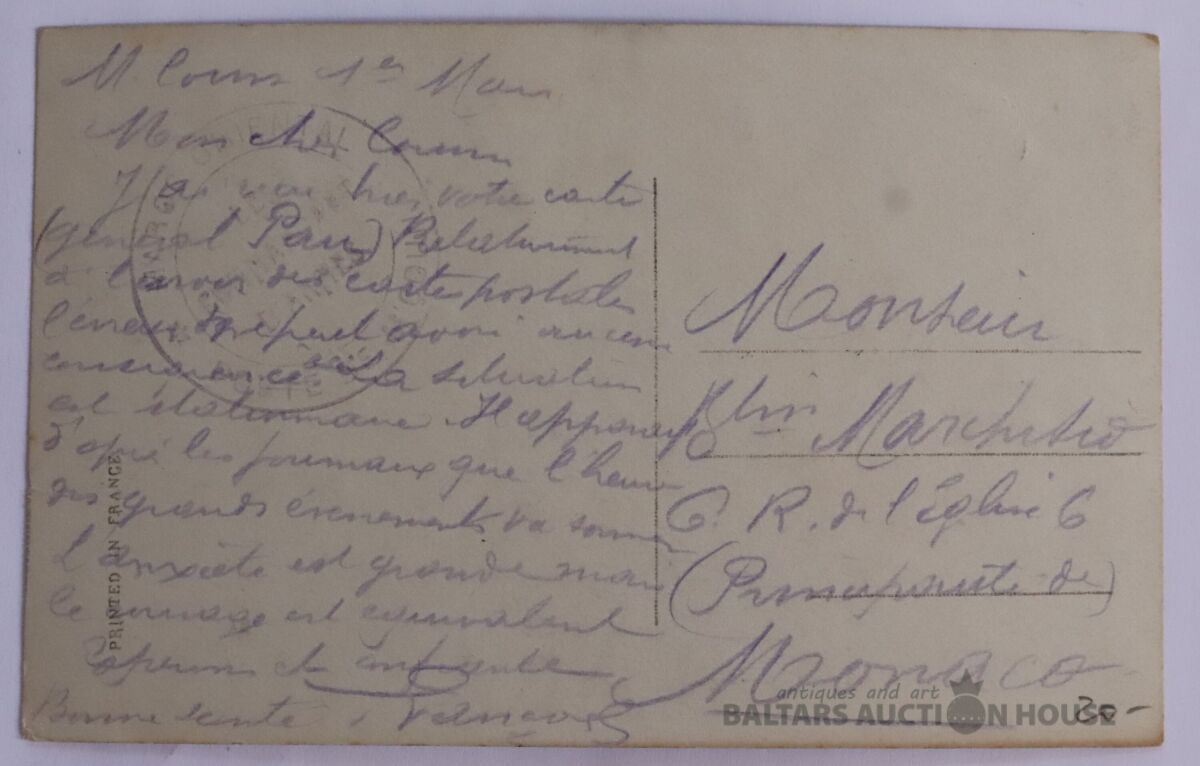 1er Mars
Mon cher
J'ai reçu hier votre carte
(général Pau) Relativement
à l'envoi des cartes postales
l'erreur ne peut avoir aucune
conséquence. La situation
est stationnaire. Il apparaît
d'après les journaux que l'heure
des grands évènements va sonner
L'anxiété est grande mais
le courage est équivalent
Bonne santé
PRINTED IN FRANCE
Monsieur
6. R. de l'Église 6
(Principauté de)
Monaco
antiques and art
BALTARS AUCTION HOUSE